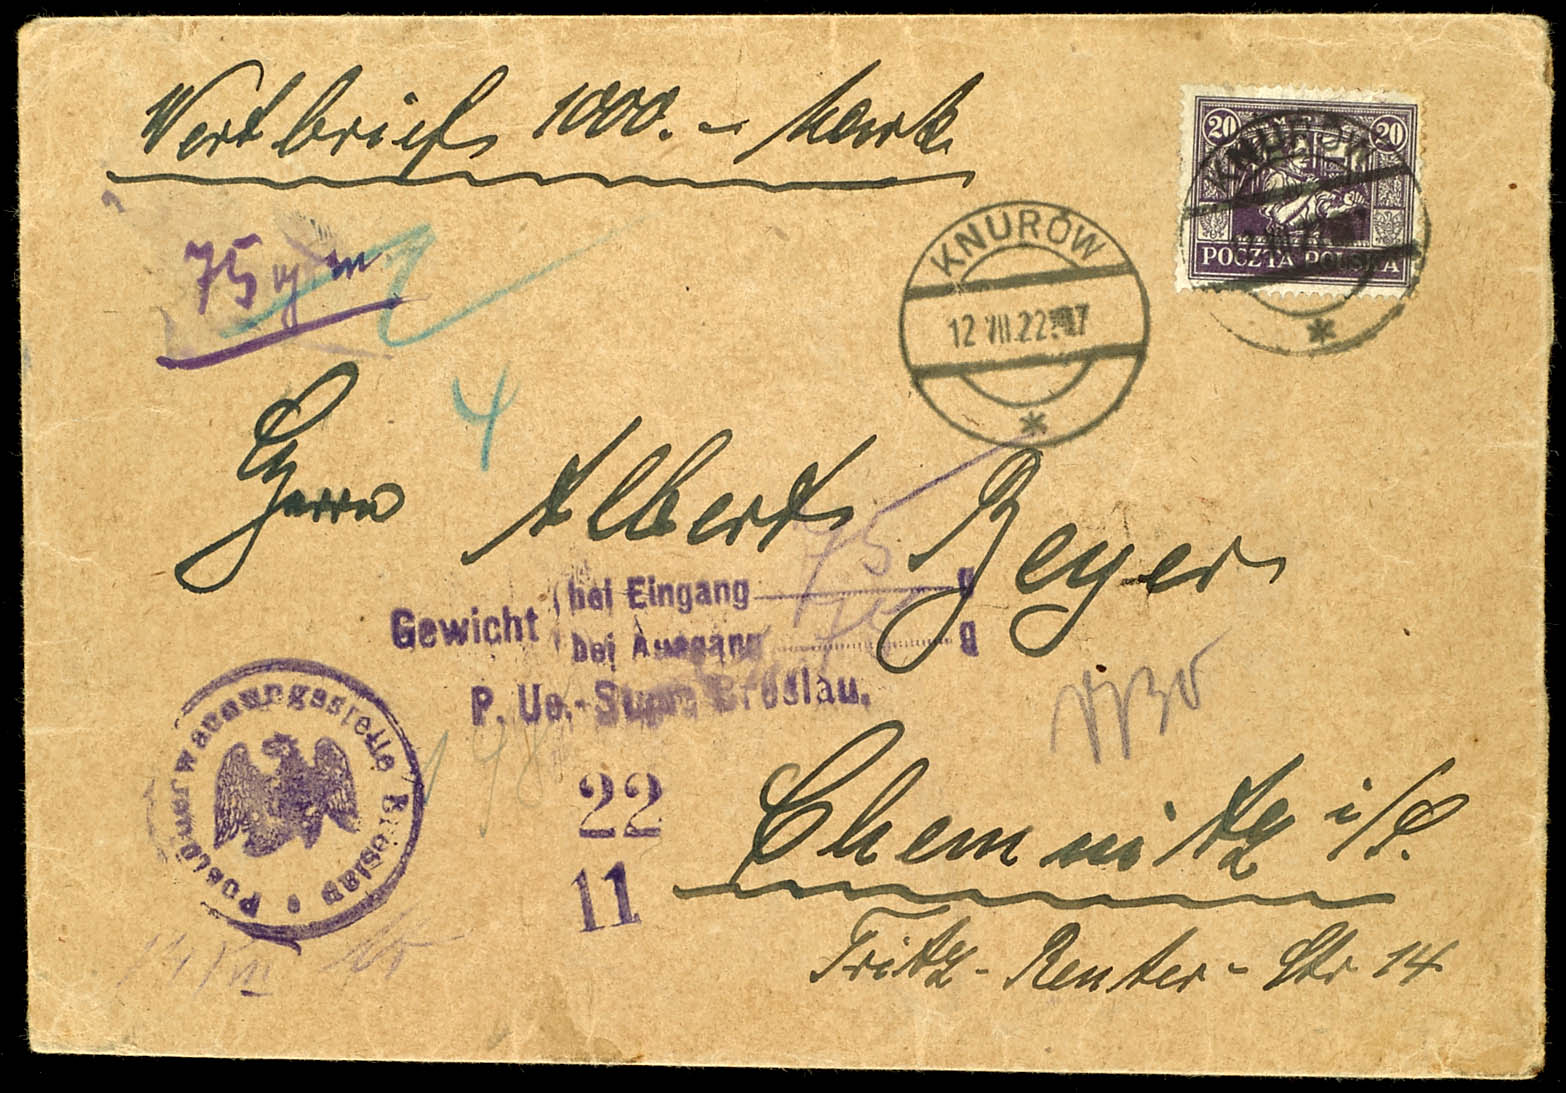 Wertbrief 1000.- Mark
20 20
KNURÓW
POCZTA POLSKA
75 gr
KNURÓW
12 VII.22 17
4
Herrn Albert Beyer
75
Gewicht
bei Eingang g
bei Ausgang g
P. Ue.- Breslau.
Postüberwachungsstelle Breslau
22
11
Chemnitz i/S.
Fritz-Reuter-Str 14